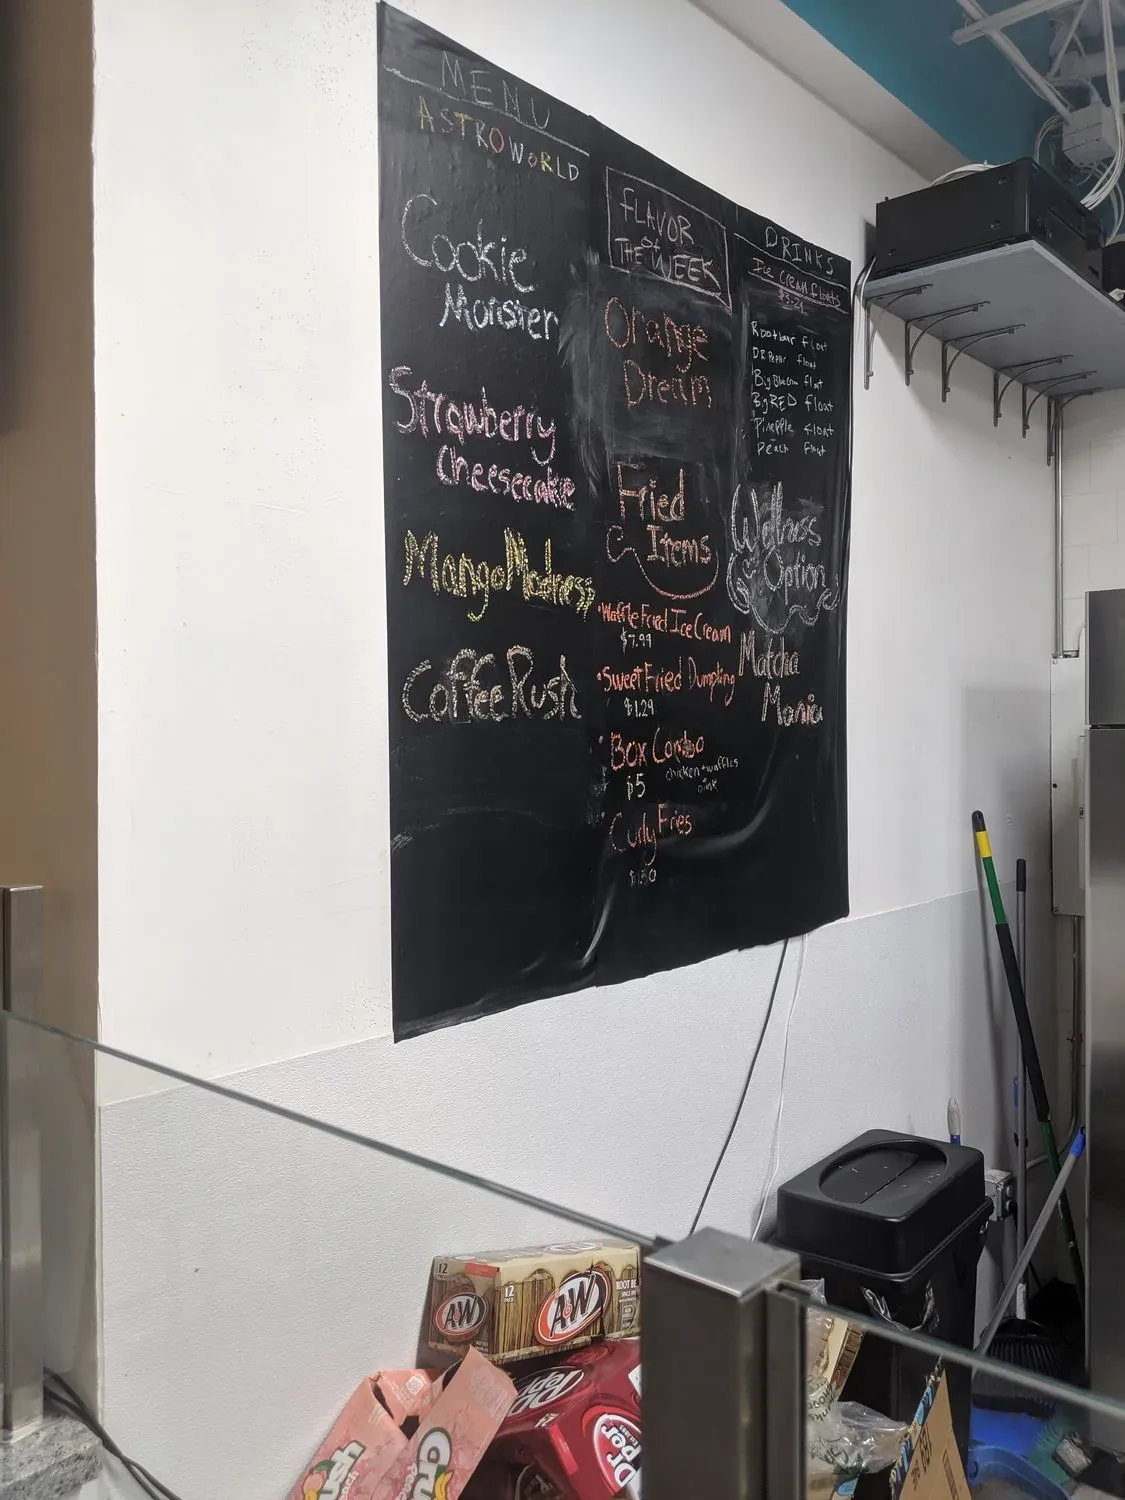 MENU
ASTROWORLD
Cookie
Monster
Strawberry
Cheesecake
Mango Madness
Coffee Rush
FLAVOR
of
THE WEEK
Orange
Dream
Fried
Items
•Waffle Fried Ice Cream
$7.99
•Sweet Fried Dumpling
$1.29
•Box Combo
$5
chicken + waffles
Curly Fries
DRINKS
Ice Cream floats
Rootbeer float
DR Pepper float
Big Blue float
Big RED float
Pineapple float
Peach float
Wellness
Option
Matcha
Mania
12
12
PACK
A&W
A&W
ROOT BE
Dr Pepper
Dr
Pepper
Crush